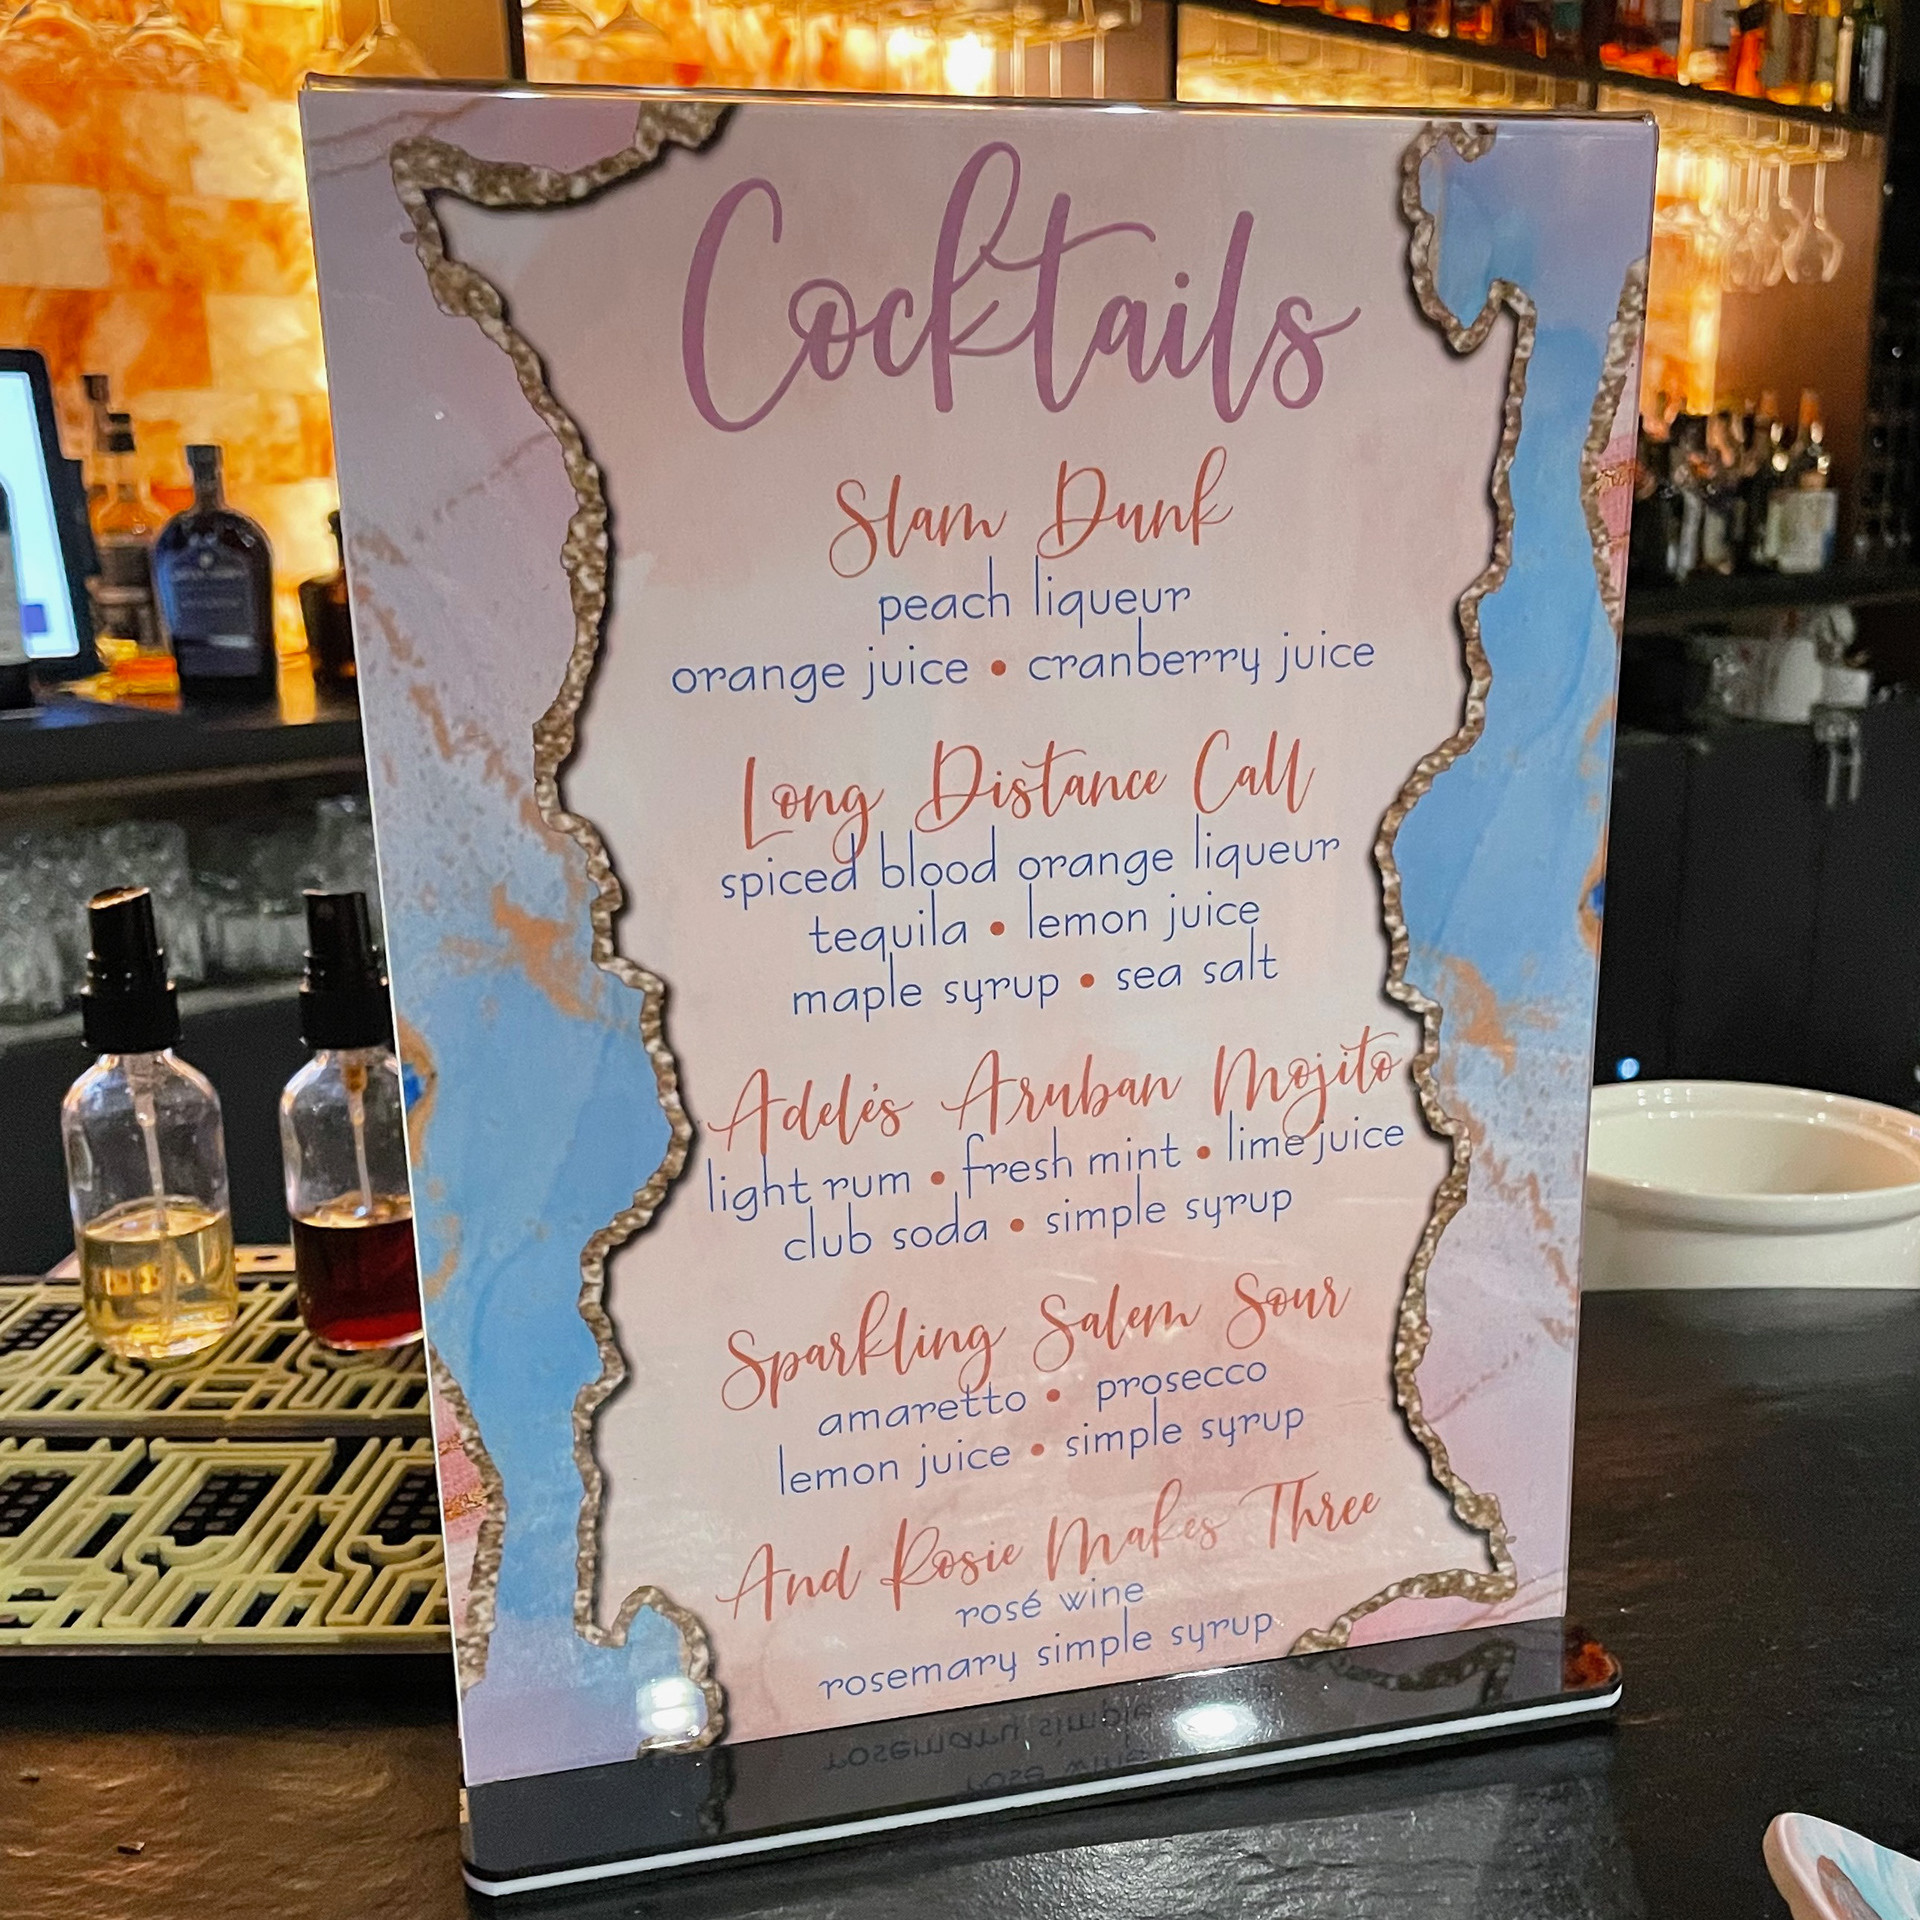 Cocktails
Slam Dunk
peach liqueur
orange juice • cranberry juice
Long Distance Call
spiced blood orange liqueur
tequila • lemon juice
maple syrup • sea salt
Adele's Aruban Mojito
light rum • fresh mint • lime juice
club soda • simple syrup
Sparkling Salem Sour
amaretto • prosecco
lemon juice • simple syrup
And Rosie Makes Three
rosé wine
rosemary simple syrup